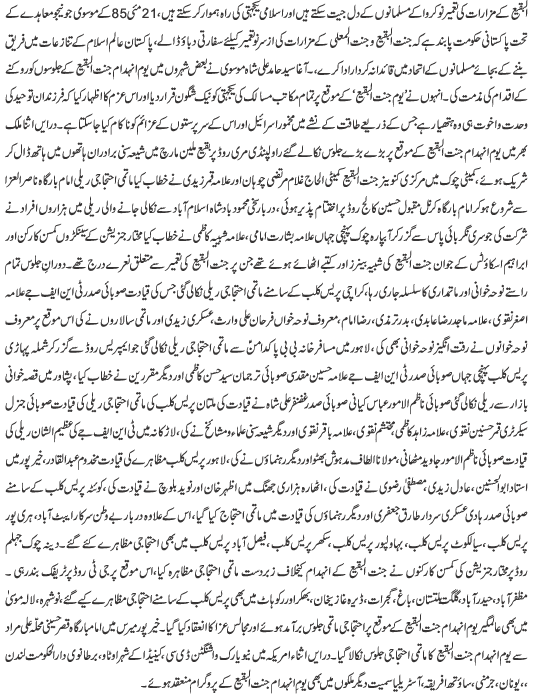 البقیع کے مزارات کی تعمیر نو کروا کے مسلمانوں کے دل جیت سکتے ہیں اور اسلامی یکجہتی کی راہ ہموار کر سکتے ہیں، 21 مئی 85 کے موسوی جونیجو معاہدے کے
تحت پاکستانی حکومت پابند ہے کہ جنت البقیع و جنت المعلی کے مزارات کی از سر نو تعمیر کیلئے سفارتی دباؤ ڈالے، پاکستان عالم اسلام کے تنازعات میں فریق
بننے کے بجائے مسلمانوں کے اتحاد میں قائدانہ کردار ادا کرے۔ آغا سید حامد علی شاہ موسوی نے بعض شہروں میں یوم انہدام جنت البقیع کے جلوسوں کو روکنے
کے اقدام کی مذمت کی۔ انہوں نے 'یوم جنت البقیع' کے موقع پر تمام مکاتب مسالک کی یکجہتی کو نیک شگون قرار دیا اور اس عزم کا اظہار کیا کہ فرزندان توحید کی
وحدت و اخوت ہی وہ ہتھیار ہے جس کے ذریعے طاقت کے نشے میں مخمور اسرائیل اور اس کے سرپرستوں کے عزائم کو ناکام کیا جا سکتا ہے۔ دریں اثنا ملک
بھر میں یوم انہدام جنت البقیع کے موقع پر بڑے بڑے جلوس نکالے گئے راولپنڈی مری روڈ پر بقیع ملین مارچ میں شیعہ سنی برادران ہاتھوں میں ہاتھ ڈال کر
شریک ہوئے، کمیٹی چوک میں مرکزی کنوینر جنت البقیع کمیٹی الحاج غلام مرتضی چوہان اور علامہ قمر زیدی نے خطاب کیا ماتمی احتجاجی ریلی امام بارگاہ ناصر العزا
سے شروع ہو کر امام بارگاہ کرنل مقبول حسین کالج روڈ پر اختتام پذیر ہوئی، دربار سخی محمود بادشاہ اسلام آباد سے نکالی جانے والی ریلی میں ہزاروں افراد نے
شرکت کی جو سری نگر ہائی پاس سے گزر کر آبپارہ چوک پہنچی جہاں علامہ بشارت امامی، علامہ شبیہہ کاظمی نے خطاب کیا مختار جنریشن کے سینکڑوں کمسن کارکن اور
ابراہیم اسکاؤٹس کے جوان جنت البقیع کی شبیہ بینرز اور کتبے اٹھائے ہوئے تھے جن پر جنت البقیع کی تعمیر سے متعلق نعرے درج تھے۔ دوران جلوس تمام
راستے نوحہ خوانی اور ماتمداری کا سلسلہ جاری رہا، کراچی پریس کلب کے سامنے ماتمی احتجاجی ریلی نکالی گئی جس کی قیادت صوبائی صدر ٹی این ایف جے علامہ
اصغر نقوی، علامہ ماجد رضا عابدی، بدر ترمذی، رضا امام، معروف نوحہ خواں فرحان علی وارث، عسکری زیدی اور ماتمی سالاروں نے کی اس موقع پر معروف
نوحہ خوانوں نے رقت انگیز نوحہ خوانی بھی کی، لاہور میں مسافر خانہ بی بی پاکدامن سے ماتمی احتجاجی ریلی نکالی گئی جو ایمپریس روڈ سے گزر کر شملہ پہاڑی
پریس کلب پہنچی جہاں صوبائی صدر ٹی این ایف جے علامہ حسین مقدسی صوبائی ترجمان سید حسن کاظمی اور دیگر مقررین نے خطاب کیا، پشاور میں قصہ خوانی
بازار سے ریلی نکالی گئی صوبائی ناظم الامور عباس کیانی صوبائی صدر غضنفر علی شاہ نے قیادت کی ملتان پریس کلب کی ماتمی احتجاجی ریلی کی قیادت صوبائی جنرل
سیکرٹری قمر حسنین نقوی، علامہ زاہد کاظمی، محتشم نقوی، علامہ باقر نقوی اور دیگر شیعہ سنی علماء و مشائخ نے کی، لاڑکانہ میں ٹی این ایف جے کی عظیم الشان ریلی کی
قیادت صوبائی ناظم الامور جاوید مٹھانی، مولانا الطاف مدہوش بھٹو اور دیگر رہنماؤں نے کی، لاہور پریس کلب مظاہرے کی قیادت مخدوم عبدالقادر، خیر پور میں
استاد ابوالحسنین، عادل زیدی، مصطفی رضوی نے قیادت کی، اٹھارہ ہزاری جھنگ میں اظہر خان اور نوید بلوچ نے قیادت کی، کوئٹہ پریس کلب کے سامنے
صوبائی صدر ہادی عسکری سردار طارق جعفری اور دیگر رہنماؤں کی قیادت میں ماتمی احتجاج کیا گیا، اس کے علاوہ دربار بے وطن سرکار ایبٹ آباد، ہری پور
پریس کلب، سیالکوٹ پریس کلب، بہاولپور پریس کلب، سکھر پریس کلب، فیصل آباد پریس کلب میں بھی احتجاجی مظاہرے کئے گئے۔ دینہ چوک جہلم
روڈ پر مختار جنریشن کی کمسن کارکنوں نے جنت البقیع کے انہدام کیخلاف زبردست ماتمی احتجاجی مظاہرہ کیا، اس موقع پر جی ٹی روڈ پر ٹریفک بند رہی۔
مظفر آباد، حیدرآباد، گلگت بلتستان، باغ، گجرات، ڈیرہ غازیخان، بھکر اور کوہاٹ میں بھی پریس کلبوں کے سامنے احتجاجی مظاہرے کیے گئے، نوشہرہ، لالہ موسیٰ
میں بھی عالمگیر یوم انہدام جنت البقیع کے موقع پر احتجاجی ماتمی جلوس برآمد ہوئے اور مجالس عزا کا انعقاد کیا گیا۔ خیر پور میرس میں امام بارگاہ قصر حسینی محلہ علی مراد
سے یوم انہدام جنت البقیع کا جلوس نکالا گیا۔ دریں اثناء امریکہ میں نیویارک، واشنگٹن ڈی سی، کینیڈا کے شہر اوٹاوہ، برطانوی دارالحکومت لندن
،، یونان، جرمنی، ساؤتھ افریقہ، آسٹریلیا سمیت دیگر ملکوں میں بھی یوم انہدام جنت البقیع کے پروگرام منعقد ہوئے۔